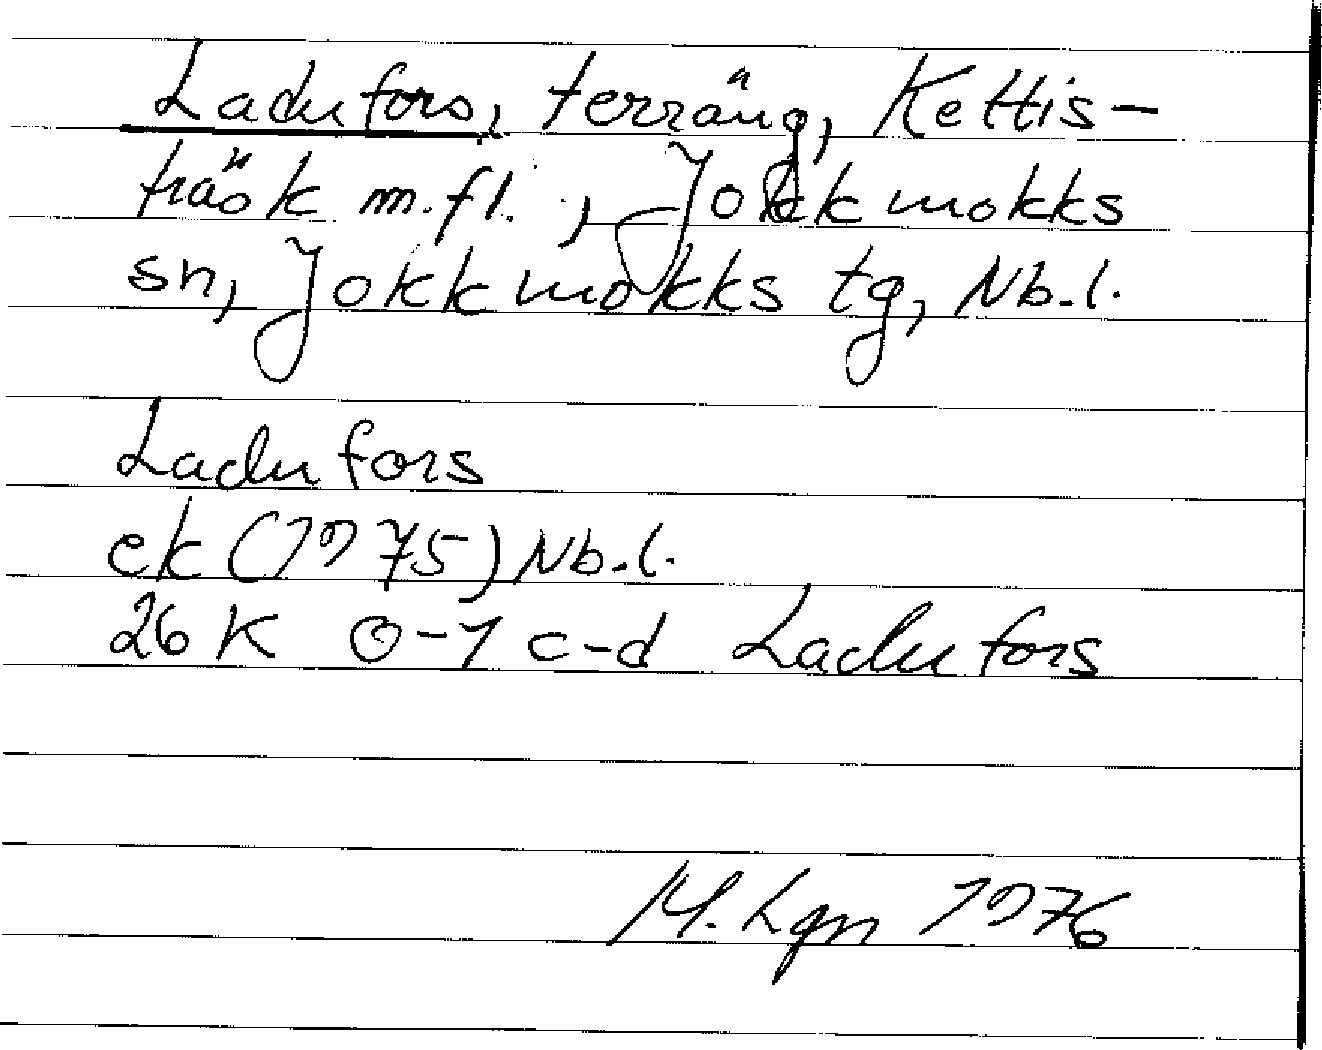 Ladufors, terräng, Kettis-
träsk m.fl., Jokkmokks
sn, Jokkmokks tg, Nb.l.
Ladufors
ek (1975) Nb.l.
26 K 0-1 c-d Ladufors
M. Lgn 1976